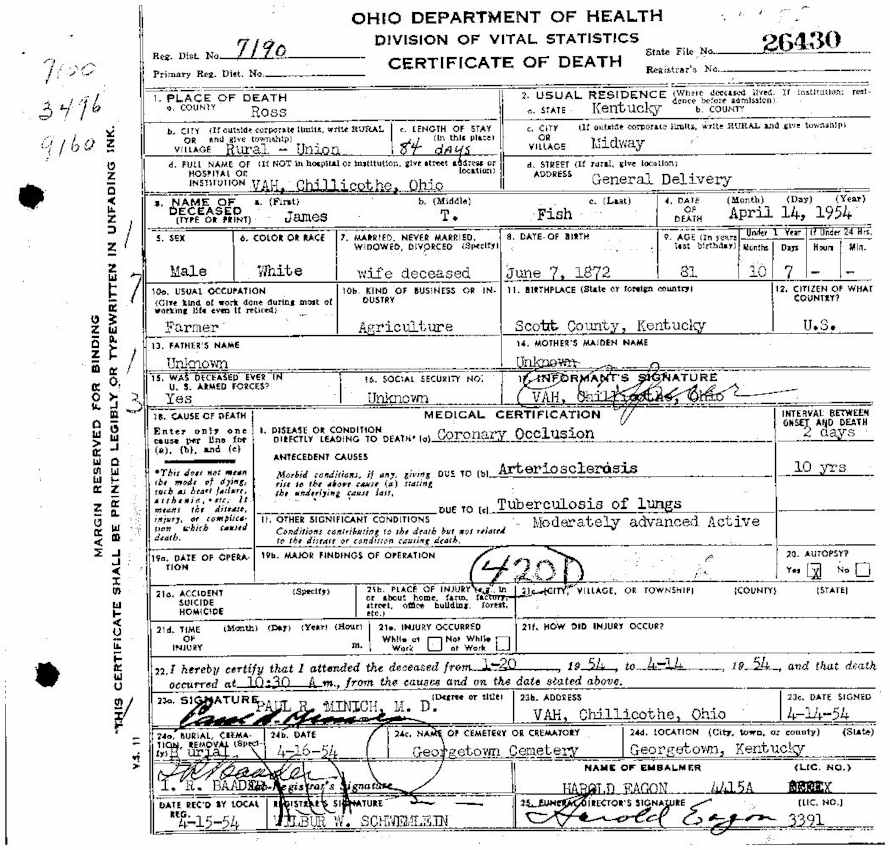 OHIO DEPARTMENT OF HEALTH
DIVISION OF VITAL STATISTICS
CERTIFICATE OF DEATH
Reg. Dist. No. 7190
Primary Reg. Dist. No.
State File No. 26430
Registrar's No.
7190
3496
9160
MARGIN RESERVED FOR BINDING
THIS CERTIFICATE SHALL BE PRINTED LEGIBLY OR TYPEWRITTEN IN UNFADING INK.
V.S. 11
1. PLACE OF DEATH
a. COUNTY Ross
2. USUAL RESIDENCE (Where deceased lived. If institution; residence before admission).
a. STATE Kentucky b. COUNTY
b. CITY (If outside corporate limits, write RURAL
OR and give township)
VILLAGE Rural - Union
c. LENGTH OF STAY
(in this place)
84 days
c. CITY (If outside corporate limits, write RURAL and give township)
OR
VILLAGE Midway
d. FULL NAME OF (If NOT in hospital or institution, give street address or location)
HOSPITAL OR
INSTITUTION VAH, Chillicothe, Ohio
d. STREET (If rural, give location)
ADDRESS General Delivery
3. NAME OF DECEASED (TYPE OR PRINT)
a. (First) James
b. (Middle) T.
c. (Last) Fish
4. DATE OF DEATH (Month) (Day) (Year)
April 14, 1954
5. SEX
Male
6. COLOR OR RACE
White
7. MARRIED, NEVER MARRIED, WIDOWED, DIVORCED (Specify)
wife deceased
8. DATE OF BIRTH
June 7, 1872
9. AGE (In years last birthday)
81
Under 1 Year If Under 24 Hrs.
Months Days Hours Min.
10 7 - -
10a. USUAL OCCUPATION
(Give kind of work done during most of working life even if retired)
Farmer
10b. KIND OF BUSINESS OR INDUSTRY
Agriculture
11. BIRTHPLACE (State or foreign country)
Scott County, Kentucky
12. CITIZEN OF WHAT COUNTRY?
U.S.
13. FATHER'S NAME
Unknown
14. MOTHER'S MAIDEN NAME
Unknown
15. WAS DECEASED EVER IN U. S. ARMED FORCES?
Yes
16. SOCIAL SECURITY NO.
Unknown
17. INFORMANT'S SIGNATURE
VAH, Chillicothe, Ohio
18. CAUSE OF DEATH
Enter only one cause per line for (a), (b), and (c)
*This does not mean the mode of dying, such as heart failure, asthenia, etc. It means the disease, injury, or complication which caused death.
MEDICAL CERTIFICATION
INTERVAL BETWEEN ONSET AND DEATH
I. DISEASE OR CONDITION
DIRECTLY LEADING TO DEATH* (a) Coronary Occlusion 2 days
ANTECEDENT CAUSES
Morbid conditions, if any, giving rise to the above cause (a) stating the underlying cause last.
DUE TO (b) Arteriosclerosis 10 yrs
DUE TO (c) Tuberculosis of lungs
II. OTHER SIGNIFICANT CONDITIONS Moderately advanced Active
Conditions contributing to the death but not related to the disease or condition causing death.
19a. DATE OF OPERATION
19b. MAJOR FINDINGS OF OPERATION
4201
20. AUTOPSY?
Yes X No
21a. ACCIDENT SUICIDE HOMICIDE (Specify)
21b. PLACE OF INJURY (e.g., in or about home, farm, factory, street, office building, forest, etc.)
21c. (CITY, VILLAGE, OR TOWNSHIP) (COUNTY) (STATE)
21d. TIME OF INJURY (Month) (Day) (Year) (Hour) m.
21e. INJURY OCCURRED
While at Work Not While at Work
21f. HOW DID INJURY OCCUR?
22. I hereby certify that I attended the deceased from 1-20, 1954, to 4-14, 1954, and that death
occurred at 10:30 A m., from the causes and on the date stated above.
23a. SIGNATURE PAUL R. MINICH, M. D. (Degree or title)
23b. ADDRESS
VAH, Chillicothe, Ohio
23c. DATE SIGNED
4-14-54
24a. BURIAL, CREMATION, REMOVAL (Specify)
Burial
24b. DATE
4-16-54
24c. NAME OF CEMETERY OR CREMATORY
Georgetown Cemetery
24d. LOCATION (City, town, or county) (State)
Georgetown, Kentucky
I. R. BAADER Sub-Registrar's Signature
NAME OF EMBALMER (LIC. NO.)
HAROLD EAGON 4415A
DATE REC'D BY LOCAL REG.
4-15-54
REGISTRAR'S SIGNATURE
WILBUR W. SCHWEMLEIN
25. FUNERAL DIRECTOR'S SIGNATURE (LIC. NO.)
Harold Eagon 3391